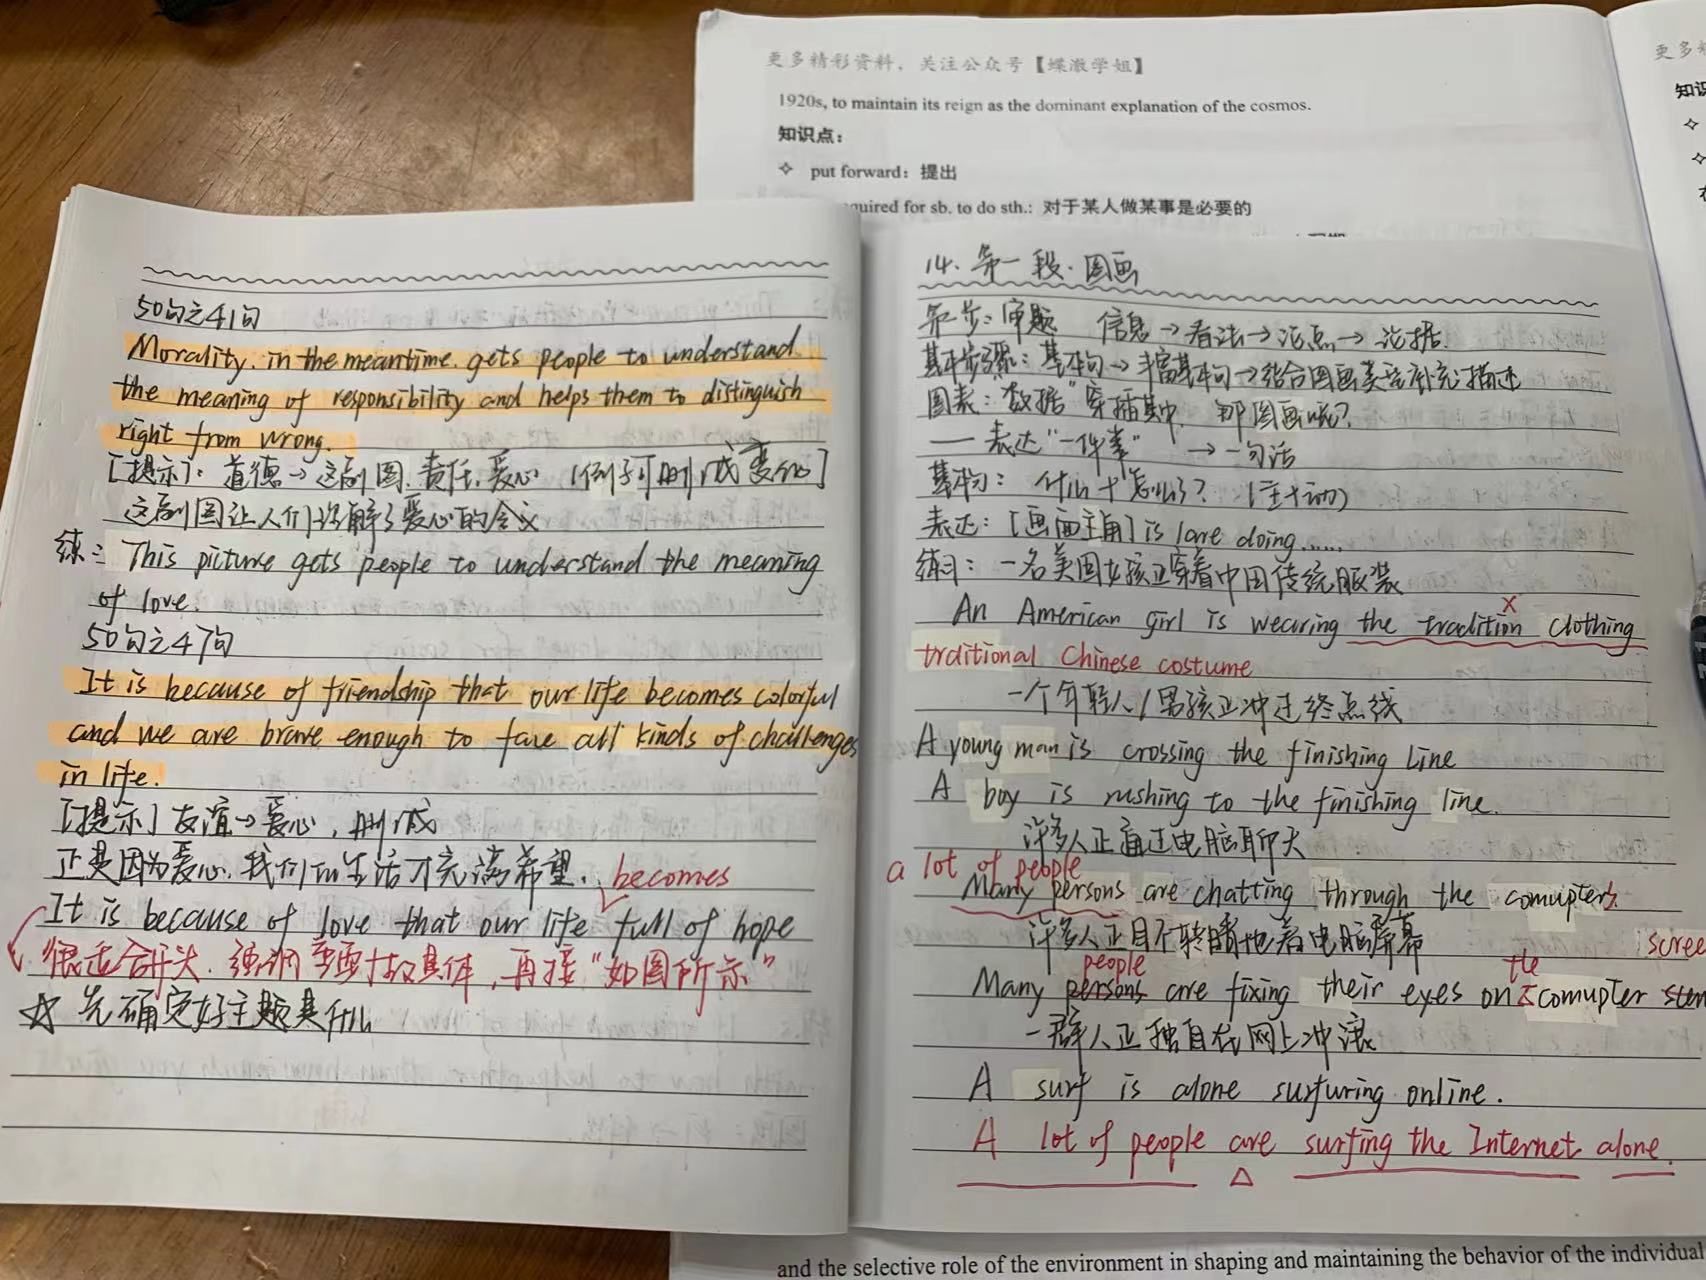 更多精彩资料，关注公众号【蝶澈学姐】
1920s, to maintain its reign as the dominant explanation of the cosmos.
知识点：
✧ put forward：提出
quired for sb. to do sth.：对于某人做某事是必要的
更多
知识
50句之41句
Morality, in the meantime, gets people to understand
the meaning of responsibility and helps them to distinguish
right from wrong.
[提示]：道德→这副图，责任，爱心（例子可删/或变化]
这副图让人们理解了爱心的含义
练：This picture gets people to understand the meaning
of love.
50句之47句
It is because of friendship that our life becomes colorful
and we are brave enough to face all kinds of challenges
in life.
[提示] 友谊→爱心，删/减
正是因为爱心，我们的生活才充满希望. becomes
It is because of love that our life full of hope
很适合开头，强调 具体，再接“如图所示”
☆ 先确定好主题是什么
14. 第一段·图画
第一步：审题 信息→看法→论点→论据.
基本步骤：基本句→丰富基本句→结合图画类适补充描述
图表：“数据”穿插其中. 那图画呢？
— 表达“一件事” →一句话
基本句：什么+怎么了？（主+动）
表达：[画面主角] is/are doing......
练习：一名美国女孩正穿着中国传统服装
x
An American girl is wearing the tradition clothing
trditional Chinese costume
一个年轻人/男孩正冲过终点线
A young man is crossing the finishing line
A boy is rushing to the finishing line.
许多人正通过电脑聊天
a lot of people
Many persons are chatting through the comupters.
许多人正目不转睛地看电脑屏幕 scree
people the
Many persons are fixing their eyes on comupter
一群人正独自在网上冲浪
A surf is alone surfuring online.
A lot of people are surfing the Internet alone.
and the selective role of the environment in shaping and maintaining the behavior of the individual